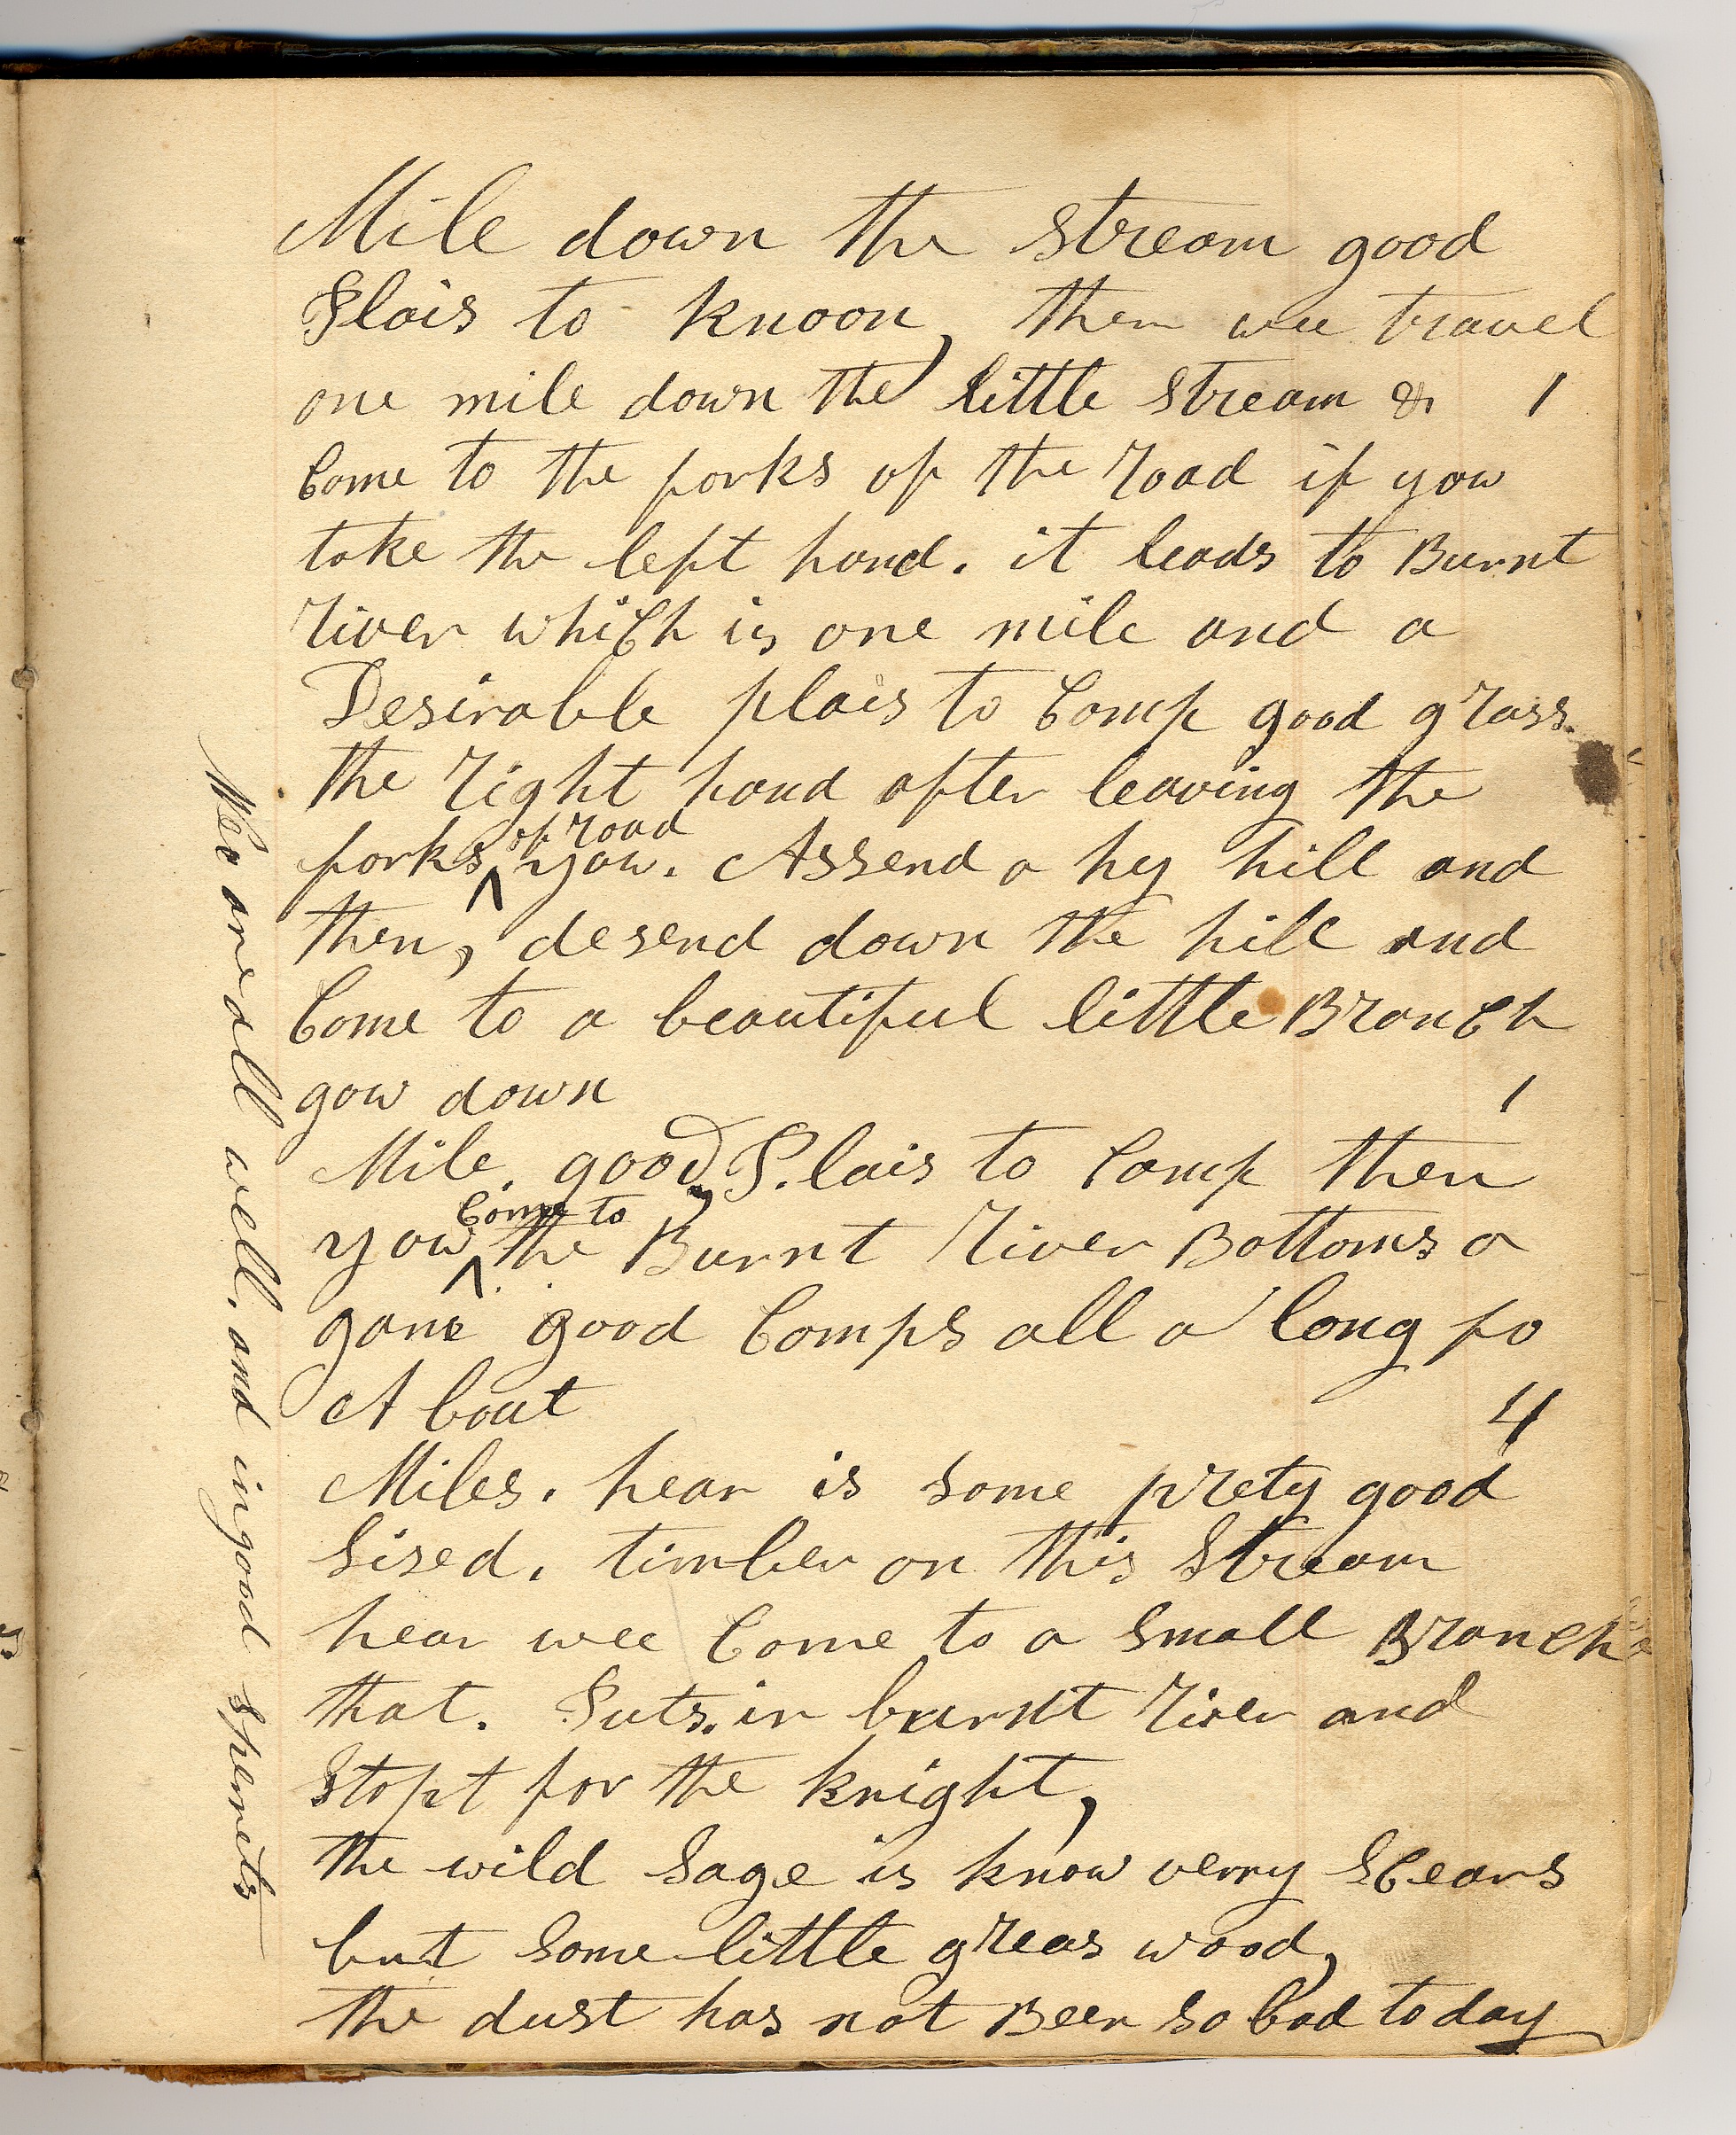 Mile down the stream good
Plais to knoon, then wee travel
one mile down the little stream & 1
Come to the forks of the road if yow
take the left hand. it leads to Burnt
river which is one mile and a
Desirable plais to Camp good grass.
the right hand after leaving the
of road
forks ^ yow. Assend a hy hill and
then, desend down the hill and
Come to a beautiful little Branch
gow down 1
Mile. good P.lais to Camp then
Come to
yow ^ the Burnt river Bottoms a
gane good Camps all a long fo
A bout 4
Miles. hear is some prety good
Sised. timber on this Stream
hear wee Come to a Small Branch
that. Puts. in burnt river and
Stopt for the knight,
the wild Sage is know verry Scears
but Some little greas wood,
the dust has not Been so bad to day
Wee are all well. and in good Sperrets